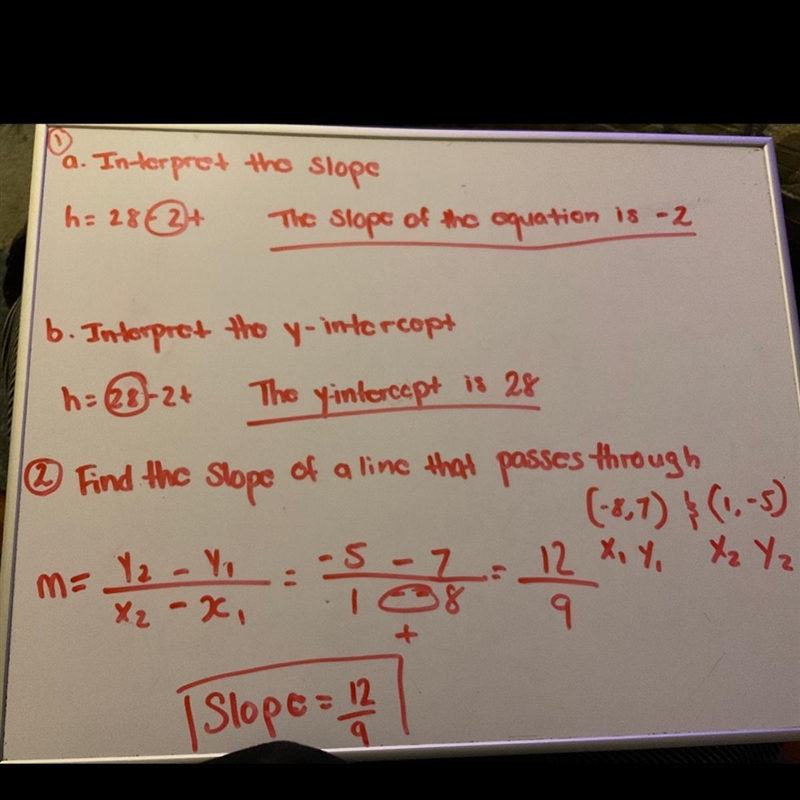 ①
a. Interpret the slope
h = 28 - 2t The slope of the equation is -2
b. Interpret the y-intercept
h = 28 - 2t The y-intercept is 28
② Find the slope of a line that passes through
(-8, 7) & (1, -5)
x₁ y₁ x₂ y₂
m = y₂ - y₁ / x₂ - x₁ = -5 - 7 / 1 - - 8 = 12 / 9
+
Slope = 12 / 9